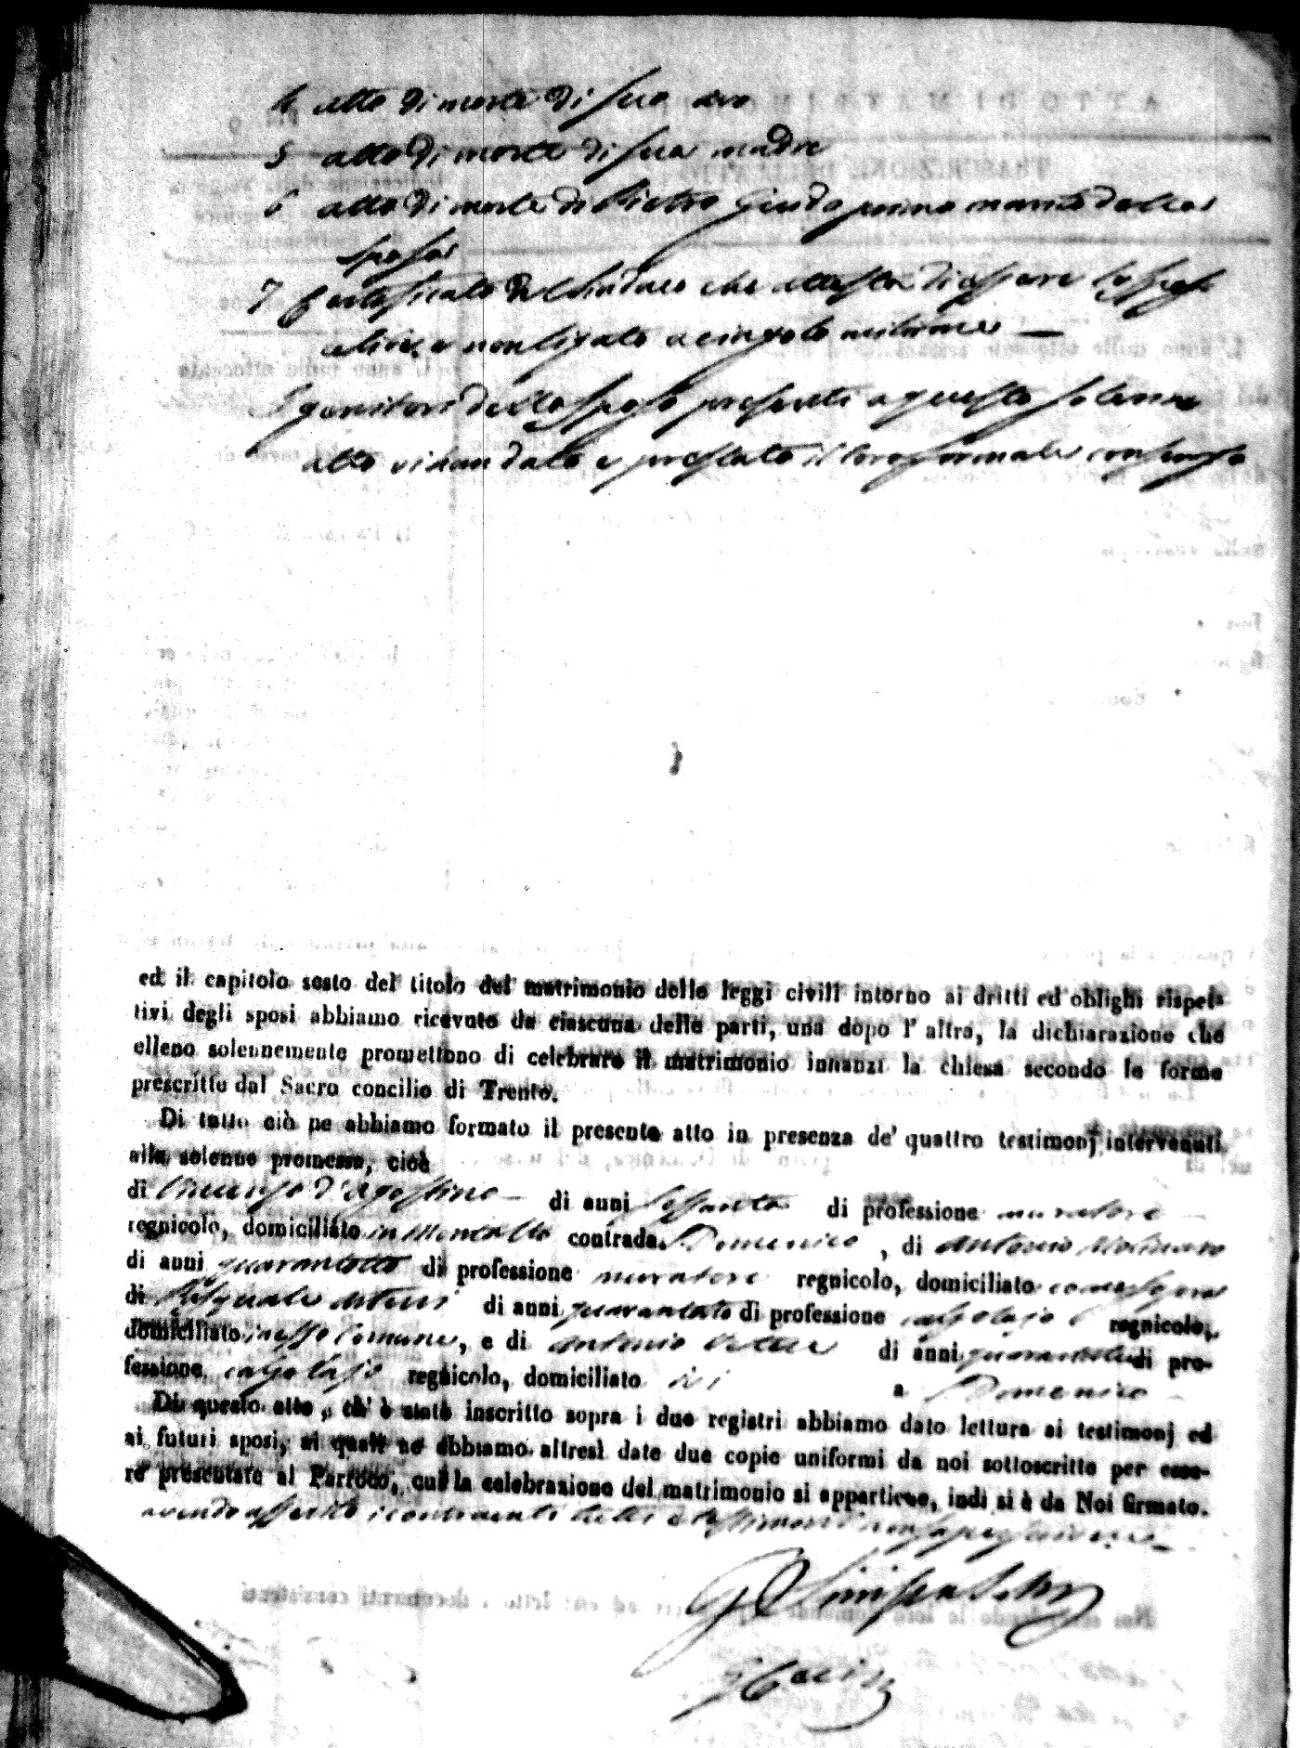 4 atto di morte di suo avo
5 atto di morte di sua madre
6 atto di morte di Pietro Giuda primo marito della
sposa
7 Certificato del Sindaco che attesta di essere lo sposo
celibe e non ligato a cingolo militare —
I genitori dello sposo presenti a questo solenne
atto vi han dato e prestato il loro formale consenso
ed il capitolo sesto del titolo del matrimonio delle leggi civili intorno ai dritti ed oblighi rispet-
tivi degli sposi abbiamo ricevuto da ciascuna delle parti, una dopo l' altra, la dichiarazione che
elleno solennemente promettono di celebrare il matrimonio innanzi la chiesa secondo le forme
prescritte dal Sacro concilio di Trento.
Di tutto ciò ne abbiamo formato il presente atto in presenza de' quattro testimonj intervenuti
alla solenne promessa, cioè
di Vincenzo d'Agostino di anni sessanta di professione muratore
regnicolo, domiciliato in contrada S. Domenico, di Antonio Molinaro
di anni quarantotto di professione muratore regnicolo, domiciliato come sopra
di Pasquale di anni di professione calzolajo regnicolo,
domiciliato in esso Comune, e di Antonio di anni di pro-
fessione calzolajo regnicolo, domiciliato ivi a S. Domenico
Di questo atto, ch' è stato inscritto sopra i due registri abbiamo dato lettura ai testimonj ed
ai futuri sposi, ai quali ne abbiamo altresì date due copie uniformi da noi sottoscritte per esse-
re presentate al Parroco, cui la celebrazione del matrimonio si appartiene, indi si è da Noi firmato.
avendo asserito i contraenti tutti e testimoni non saper scrivere —